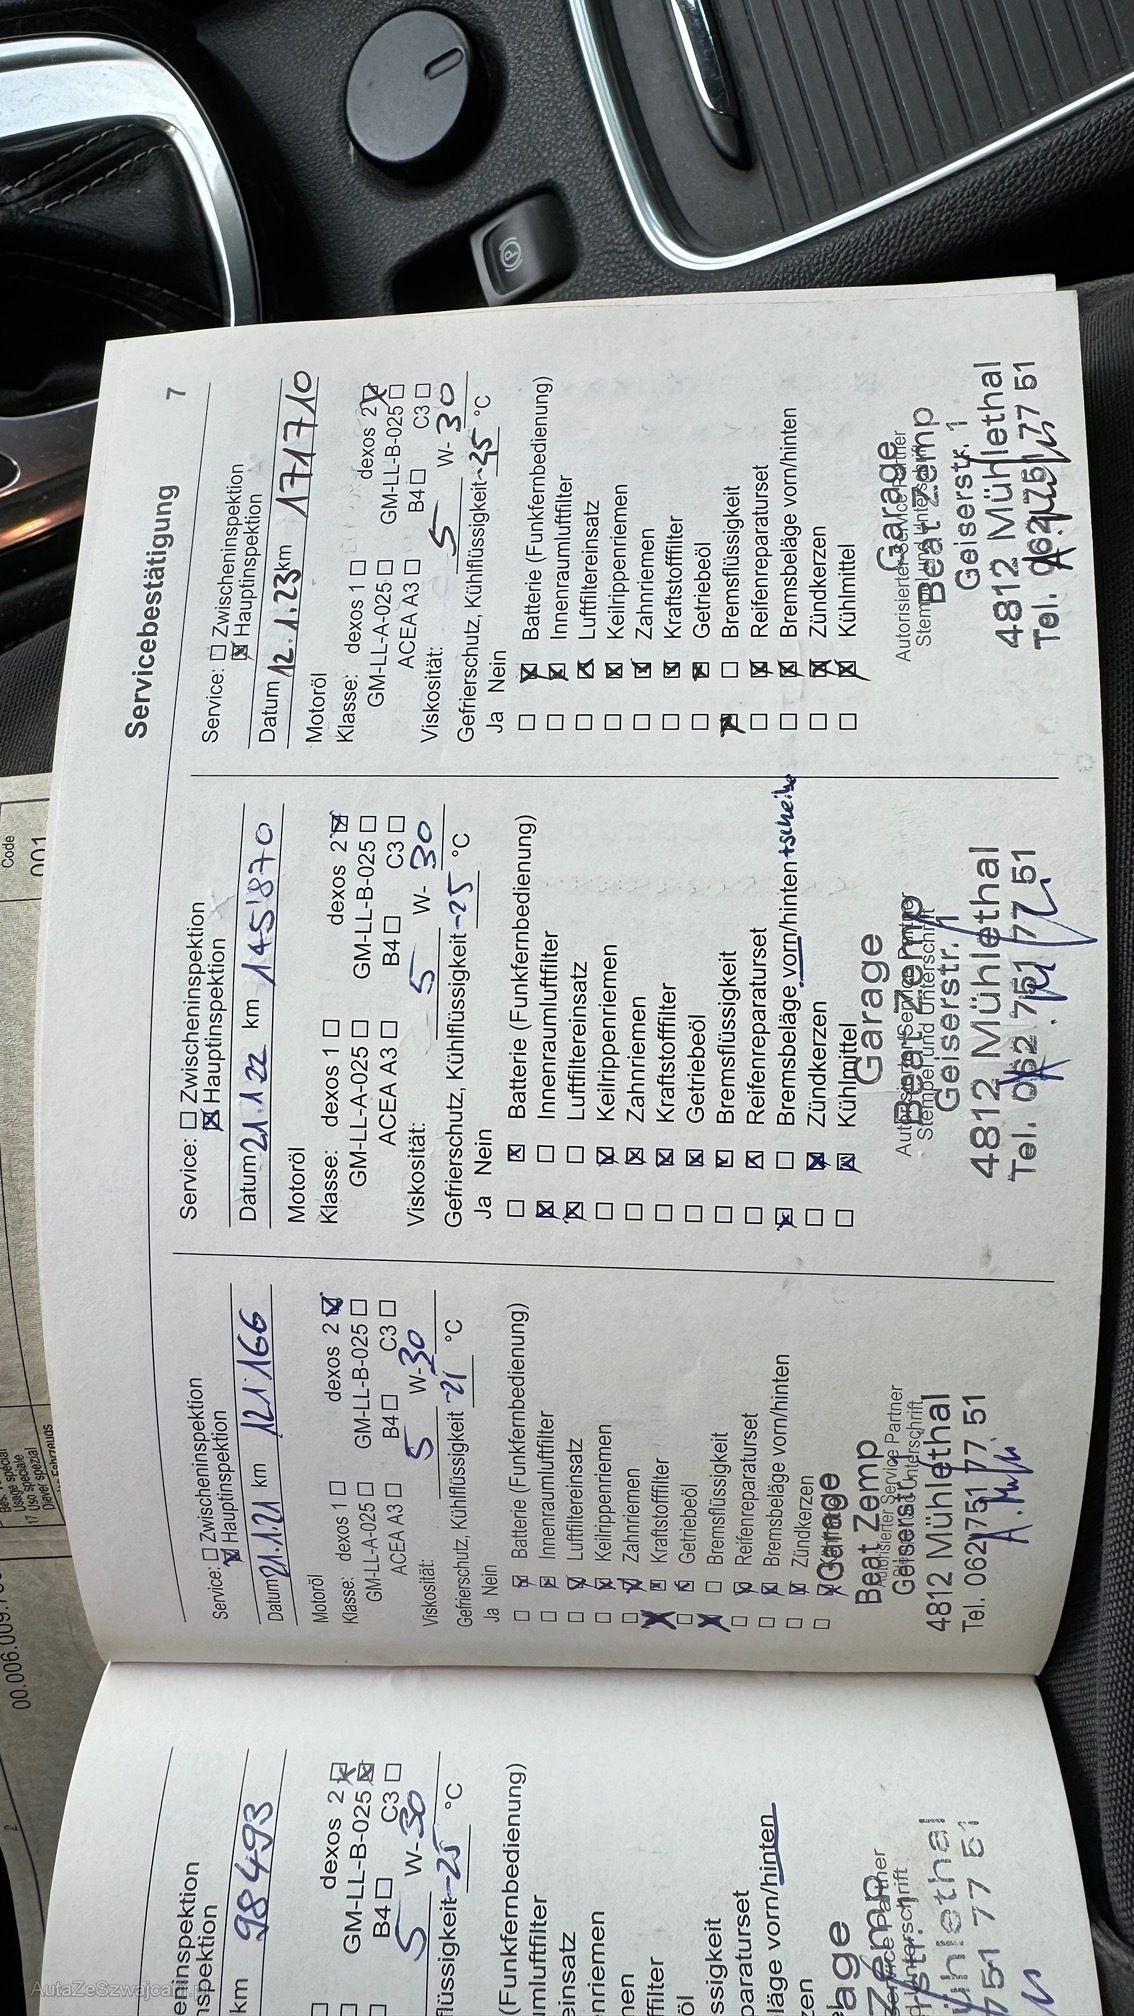 Servicebestätigung
7
Service: Zwischeninspektion
Hauptinspektion
Datum 21.1.21 km 121'166
Motoröl
Klasse: dexos 1 dexos 2
GM-LL-A-025 GM-LL-B-025
ACEA A3 B4 C3
Viskosität: 5 W-30
Gefrierschutz, Kühlflüssigkeit -21 °C
Ja Nein
Batterie (Funkfernbedienung)
Innenraumluftfilter
Luftfiltereinsatz
Keilrippenriemen
Zahnriemen
Kraftstofffilter
Getriebeöl
Bremsflüssigkeit
Reifenreparaturset
Bremsbeläge vorn/hinten
Zündkerzen
Garage
Beat Zemp
Autorisierter Service Partner
Stempel und Unterschrift
Geiserstr. 1
4812 Mühlethal
Tel. 062 751 77 51
Service: Zwischeninspektion
Hauptinspektion
Datum 21.1.22 km 145'870
Motoröl
Klasse: dexos 1 dexos 2
GM-LL-A-025 GM-LL-B-025
ACEA A3 B4 C3
Viskosität: 5 W-30
Gefrierschutz, Kühlflüssigkeit -25 °C
Ja Nein
Batterie (Funkfernbedienung)
Innenraumluftfilter
Luftfiltereinsatz
Keilrippenriemen
Zahnriemen
Kraftstofffilter
Getriebeöl
Bremsflüssigkeit
Reifenreparaturset
Bremsbeläge vorn/hinten +scheibe
Zündkerzen
Kühlmittel
Garage
Autorisierter Service Partner
Beat Zemp
Stempel und Unterschrift
Geiserstr. 1
4812 Mühlethal
Tel. 062 751 77 51
Service: Zwischeninspektion
Hauptinspektion
Datum 12.1.23 km 171710
Motoröl
Klasse: dexos 1 dexos 2
GM-LL-A-025 GM-LL-B-025
ACEA A3 B4 C3
Viskosität: 5 W-30
Gefrierschutz, Kühlflüssigkeit -25 °C
Ja Nein
Batterie (Funkfernbedienung)
Innenraumluftfilter
Luftfiltereinsatz
Keilrippenriemen
Zahnriemen
Kraftstofffilter
Getriebeöl
Bremsflüssigkeit
Reifenreparaturset
Bremsbeläge vorn/hinten
Zündkerzen
Kühlmittel
Garage
Autorisierter Service Partner
Beat Zemp
Stempel und Unterschrift
Geiserstr. 1
4812 Mühlethal
Tel. 062 751 77 51
eninspektion
nspektion
km 98493
dexos 2
GM-LL-B-025
B4 C3
5 W-30
flüssigkeit -25 °C
(Funkfernbedienung)
umluftfilter
einsatz
nriemen
men
ffilter
öl
ssigkeit
paraturset
läge vorn/hinten
zen
age
Zemp
Service Partner
Unterschrift
str. 1
ühlethal
751 77 51
Code
001
Usage spécial
17 Uso speciale
2
P
AutaZeSzwajcarii